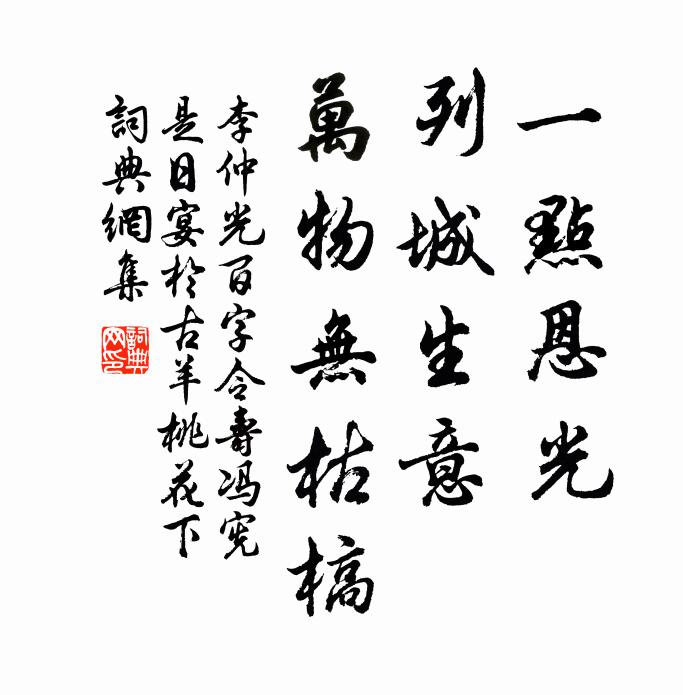 一點恩光
列城生意
萬物無枯槁
李仲光百字令壽馮宪
是日宴於古羊桃花下
詞典網集
詞典
网印